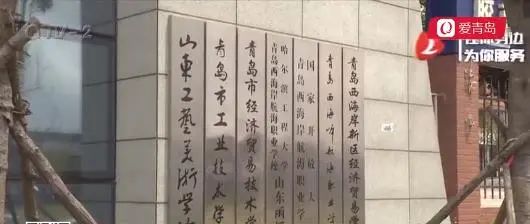 QTV-2
爱青岛
在你身边
为你服务
青岛西海岸新区经济贸易
青岛西海岸航海职业学
国家开放大
青岛西海岸航海职业学
哈尔滨工程大学山东函
青岛西海岸航海职业学校
青岛市经济贸易技术学
青岛市工业技术学
山东工艺美术学